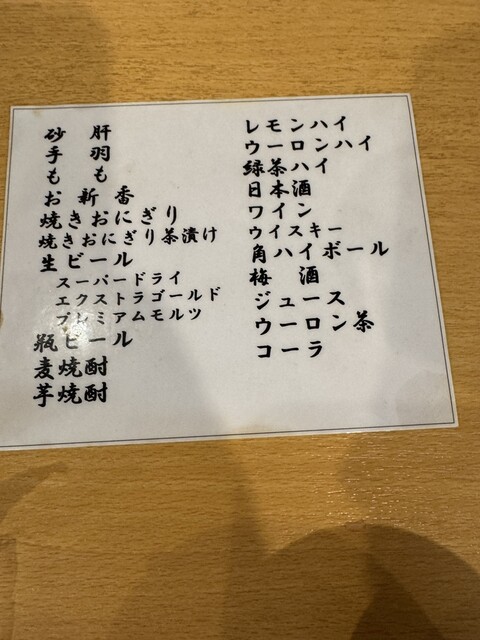 砂肝
手羽
もも
お新香
焼きおにぎり
焼きおにぎり茶漬け
生ビール
スーパードライ
エクストラゴールド
プレミアムモルツ
瓶ビール
麦焼酎
芋焼酎
レモンハイ
ウーロンハイ
緑茶ハイ
日本酒
ワイン
ウイスキー
角ハイボール
梅酒
ジュース
ウーロン茶
コーラ